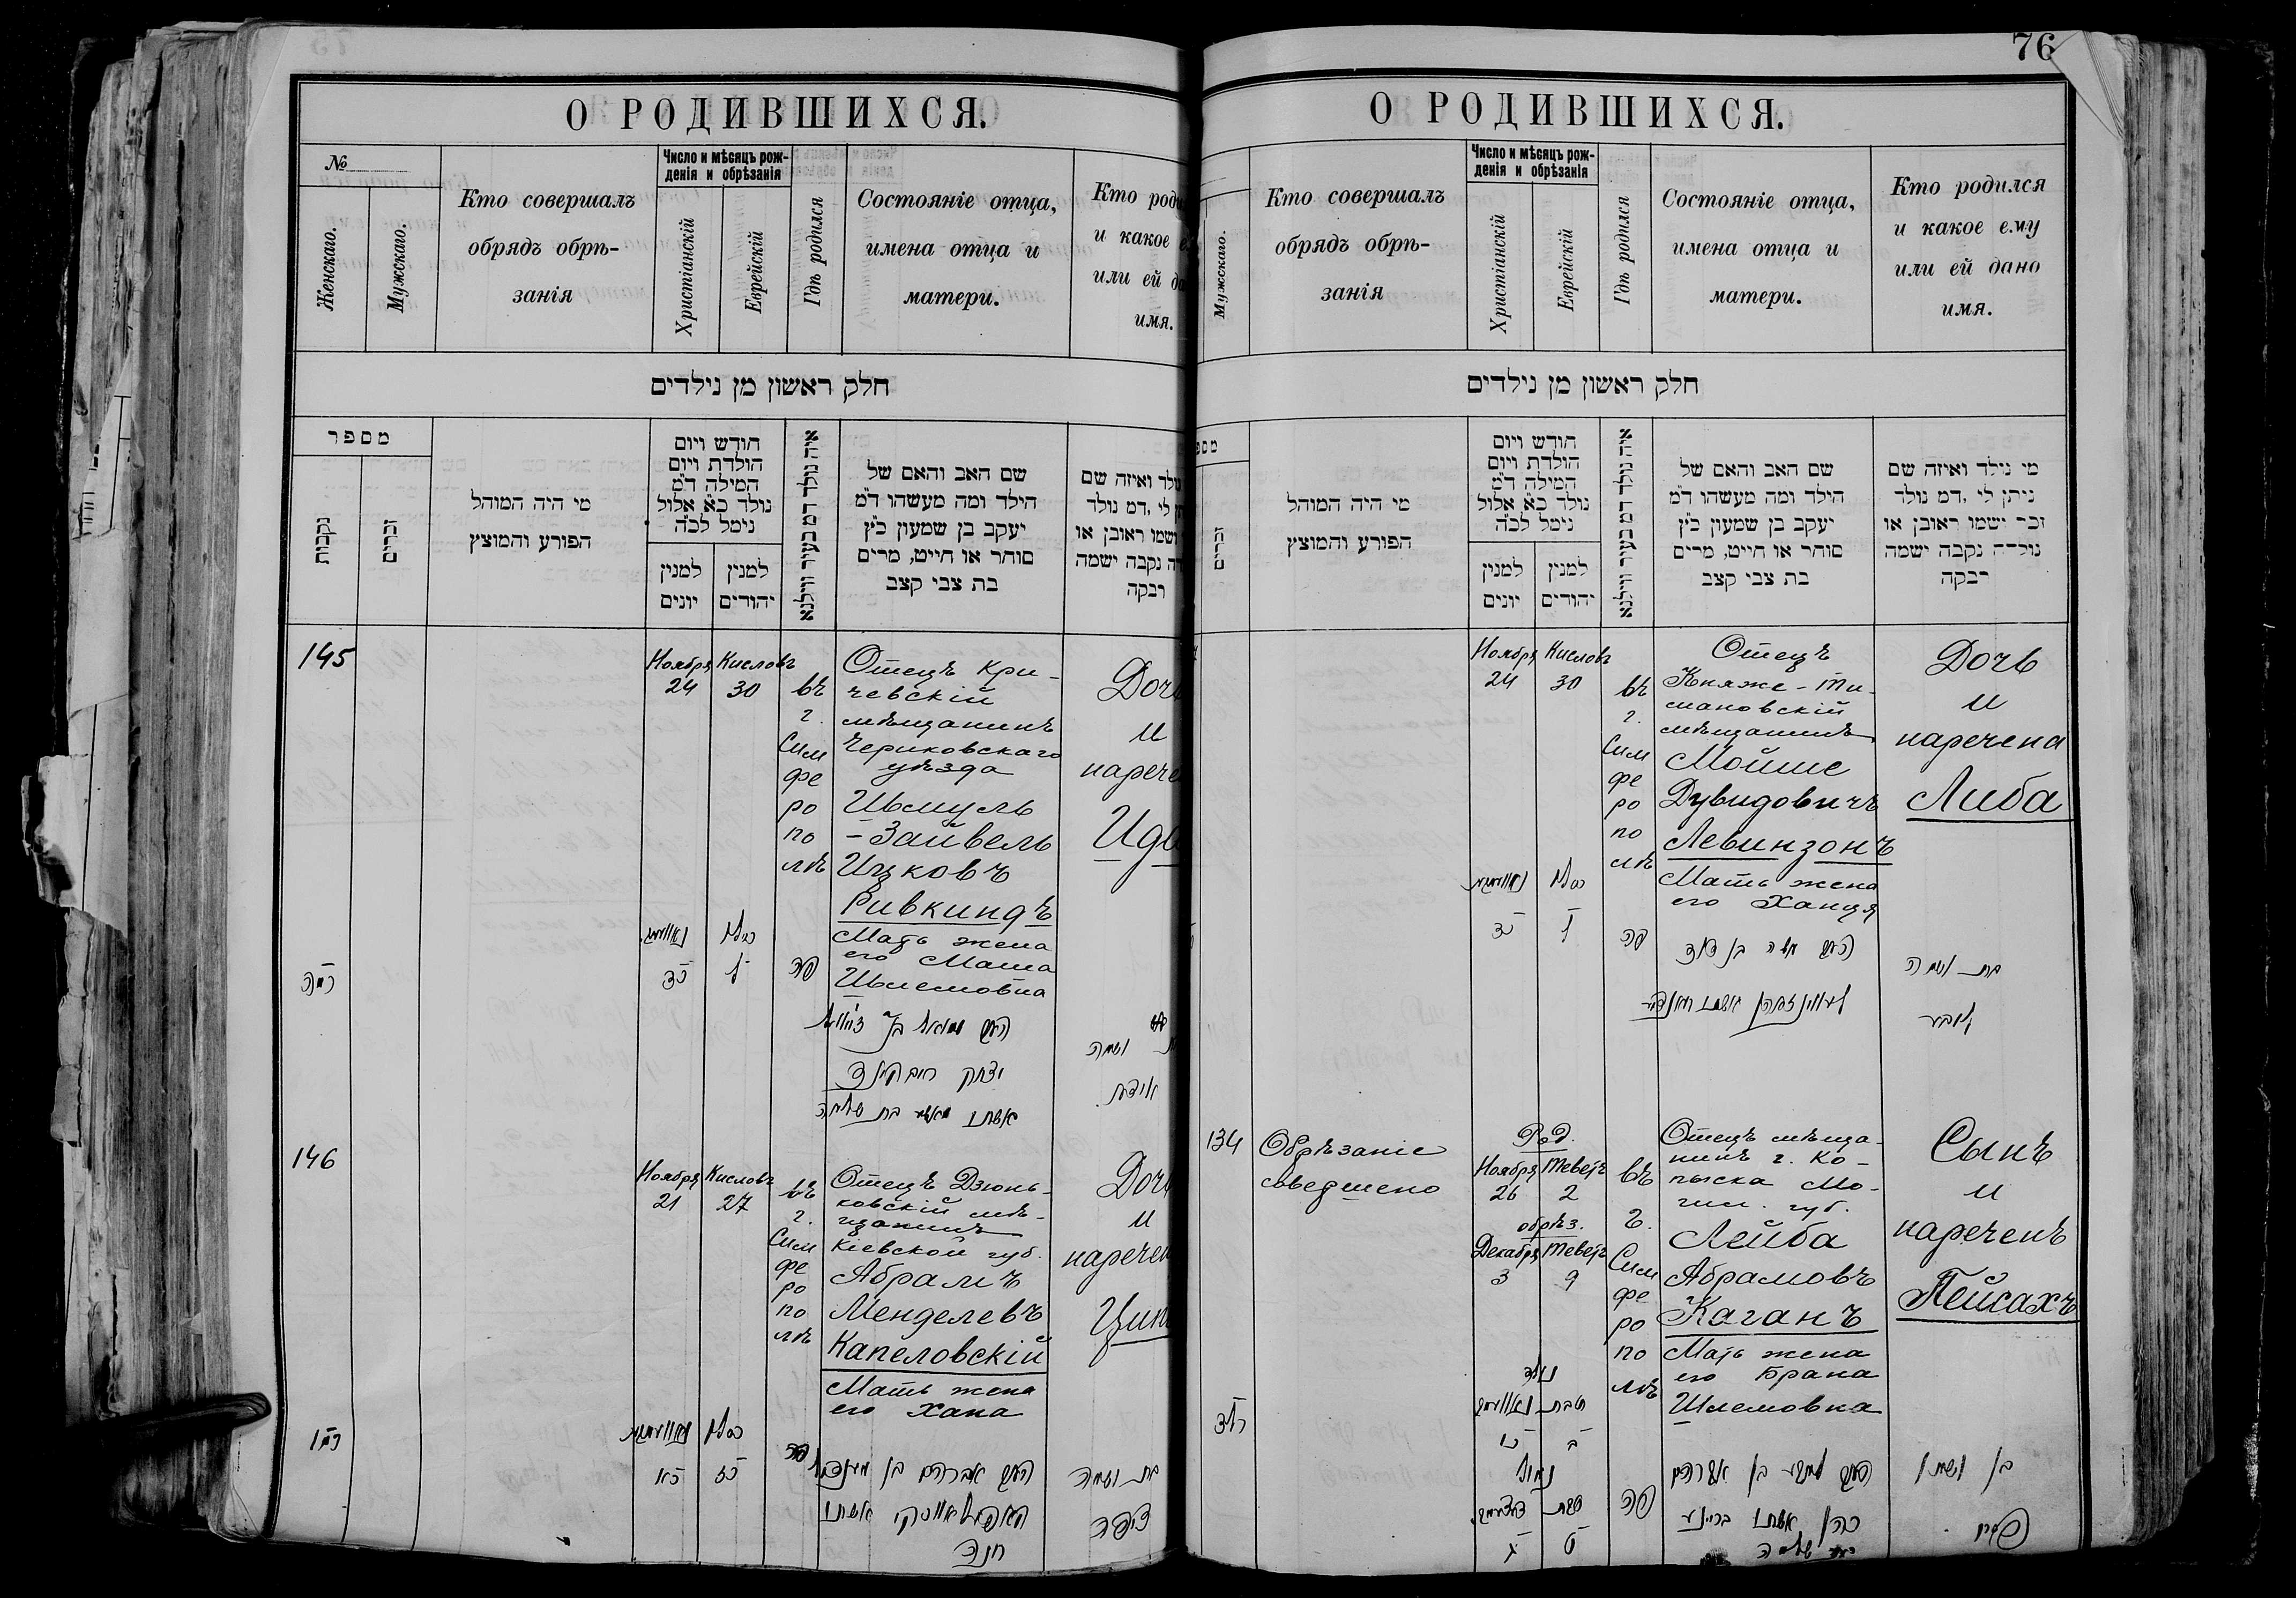 О РОДИВШИХСЯ.
№
Женскаго.
Мужскаго.
Кто совершалъ
обрядъ обрѣ-
занія
Число и мѣсяцъ рож-
денія и обрѣзанія
Христіанскій
Еврейскій
Гдѣ родился
Состояніе отца,
имена отца и
матери.
Кто роди
и какое е
или ей да
имя.
חלק ראשון מן נילדים
מספר
נקבות
זכרים
מי היה המוהל
הפורע והמוצץ
חודש ויום
הולדת ויום
המילה ד״מ
נולד כ״א אלול
נימל לכ״ה
למנין
יונים
למנין
יהודים
איה נולד דמ בעיר ווילנא
שם האב והאם של
הילד ומה מעשהו ד״מ
יעקב בן שמעון כ״ץ
סוחר או חייט, מרים
בת צבי קצב
ילד ואיזה שם
לי ,דמ נולד
ושמו ראובן או
נקבה ישמה
רבקה
145
Ноября
24
Кисловъ
30
въ
г.
Сим
фе
ро
по
лѣ
Отецъ Кри-
чевскій
мѣщанинъ
Чериковскаго
уѣзда
Шмуль
-Зайвель
Ицковъ
Ривкиндъ
Мать жена
его Маша
Шлемовна
Доч
и
нарече
Ид
רמה
כד
ל
פה
יצחק ריבקינד
ושמה
אידת
146
Ноября
21
Кисловъ
27
въ
г.
Сим
фе
ро
по
лѣ
Отецъ Дзюнь-
ковскій мѣ-
щанинъ
Кіевской губ.
Абрамъ
Менделевъ
Капеловскій
Мать жена
его Хана
Доч
и
наречен
Цип
רמו
כא
כז
חנה
בת ושמה
ציפה
76
О РОДИВШИХСЯ.
Мужскаго.
Кто совершалъ
обрядъ обрѣ-
занія
Число и мѣсяцъ рож-
денія и обрѣзанія
Христіанскій
Еврейскій
Гдѣ родился
Состояніе отца,
имена отца и
матери.
Кто родился
и какое ему
или ей дано
имя.
חלק ראשון מן נילדים
מספ
זכרים
מי היה המוהל
הפורע והמוצץ
חודש ויום
הולדת ויום
המילה ד״מ
נולד כ״א אלול
נימל לכ״ה
למנין
יונים
למנין
יהודים
איה נולד דמ בעיר ווילנא
שם האב והאם של
הילד ומה מעשהו ד״מ
יעקב בן שמעון כ״ץ
סוחר או חייט, מרים
בת צבי קצב
מי נילד ואיזה שם
ניתן לי ,דמ נולד
זכר ישמו ראובן או
נולדה נקבה ישמה
רבקה
Ноября
24
Кисловъ
30
въ
г.
Сим
фе
ро
по
лѣ
Отецъ
Княже-Ти-
мановскій
мѣщанинъ
Мойше
Дувидовичъ
Левинзонъ
Мать жена
его Ханця
Дочь
и
наречена
Либа
כד
ל
פה
משה בן דוד
בת ושמה
ליבע
134
Обрѣзаніе
совершено
Род.
Ноября
26
Теветъ
2
обрѣз.
Декабря
3
Теветъ
9
въ
г.
Сим
фе
ро
по
лѣ
Отецъ мѣща-
нинъ г. Ко-
пыска Мо-
гил. губ.
Лейба
Абрамовъ
Каганъ
Мать жена
его Брана
Шлемовна
Сынъ
и
нареченъ
Пейсахъ
קלד
נולד
טבת
כו
ב
נימול
טבת
ג
ט
פה
בן ושמו
פסח